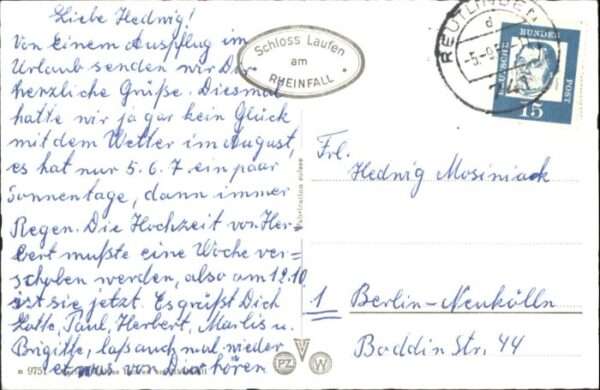 Liebe Hedwig!
Von einem Ausflug im
Urlaub senden wir Dir
herzliche Grüße. Diesmal
hatte wir ja gar kein Glück
mit dem Wetter im August,
es hat nur 5. 6. 7 ein paar
Sonnentage, dann immer
Regen. Die Hochzeit von Her=
bert mußte eine Woche ver=
schoben werden, also am 12.10
ist sie jetzt. Es grüßt Dich
Lotte, Paul, Herbert, Marlis u.
Brigitte, laß auch mal wieder
etwas von Dir hören
Schloss Laufen
am
RHEINFALL
REUTLINGEN
d
DEUTSCHE
BUNDES
POST
15
Frl.
Hedwig Mosiniack
1 Berlin-Neukölln
Boddin Str. 44
975
PZ V W